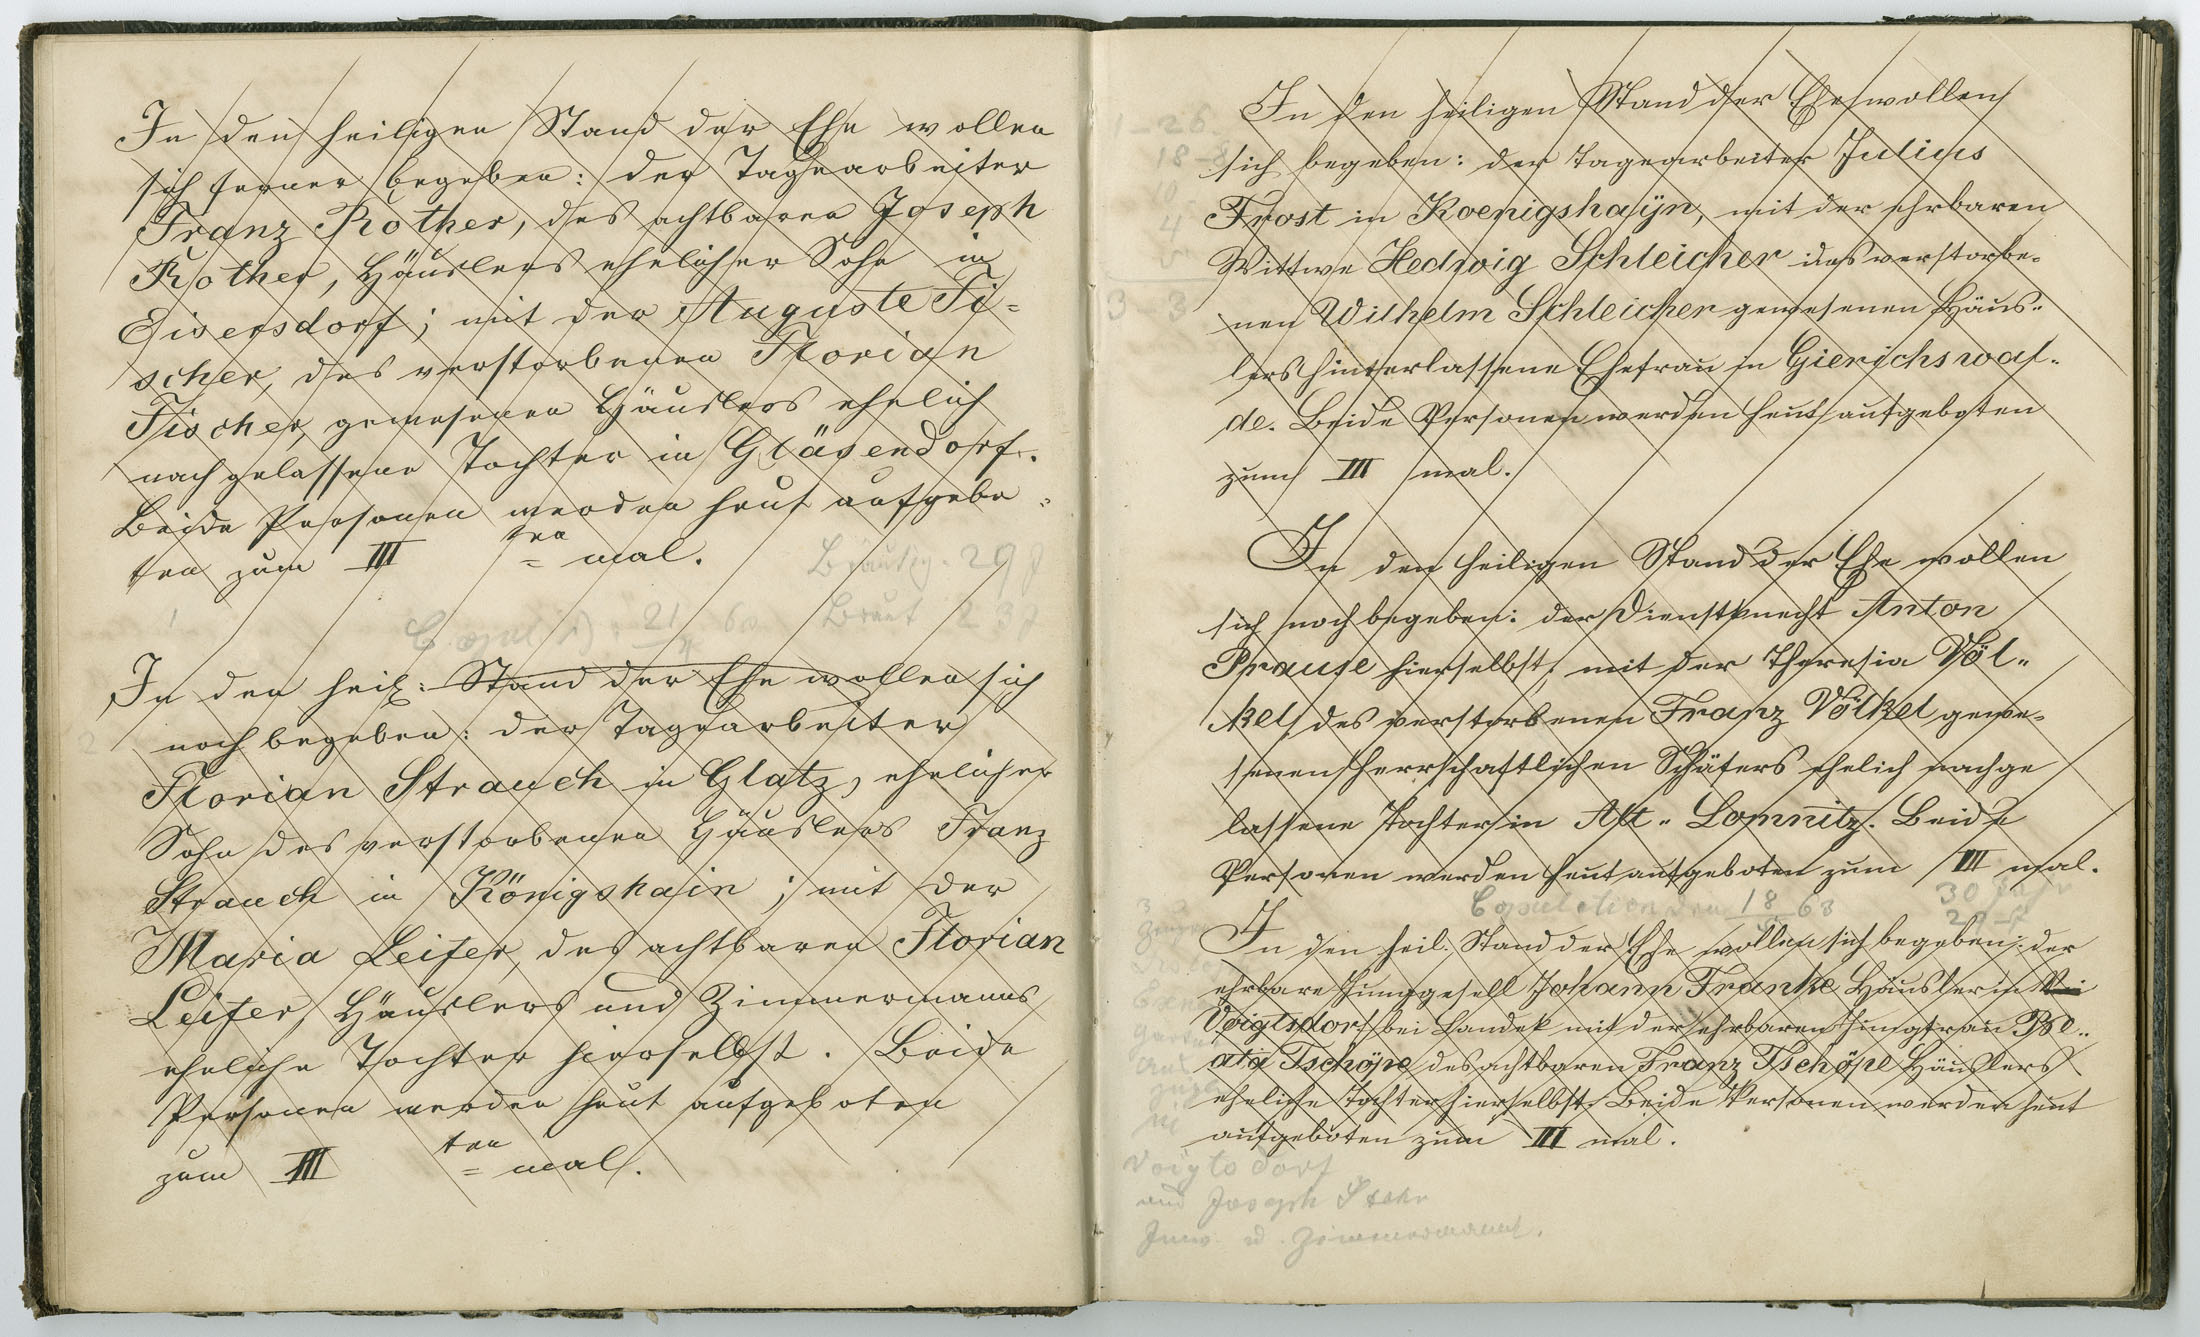 In den heiligen Stand der Ehe wollen
sich ferner begeben: der Tagearbeiter
Franz Rother, des achtbaren Joseph
Rother, Häuslers ehelicher Sohn in
Eisersdorf; mit der Auguste Fi=
scher, des verstorbenen Florian
Fischer, gewesenen Häuslers ehelich
nachgelassene Tochter in Gläsendorf.
Beide Personen werden heut aufgebo=
ten zum III ten mal.
Bräutig. 29 J
Braut 23 J
In den heil: Stand der Ehe wollen sich
noch begeben: der Tagearbeiter
Florian Strauch in Glatz, ehelicher
Sohn des verstorbenen Häuslers Franz
Strauch in Königshain; mit der
Maria Leifer, des achtbaren Florian
Leifer, Häuslers und Zimmermanns
eheliche Tochter hierselbst. Beide
Personen werden heut aufgeboten
zum III ten mal.
In den heiligen Stand der Ehe wollen
sich begeben: der Tagearbeiter Julius
Frost in Koenigshayn, mit der ehrbaren
Wittwe Hedwig Schleicher des verstorbe=
nen Wilhelm Schleicher gewesenen Häus=
lers hinterlassene Ehefrau in Gierichswal=
de. Beide Personen werden heut aufgeboten
zum III mal.
In den heiligen Stand der Ehe wollen
sich noch begeben: der Dienstknecht Anton
Prause hierselbst, mit der Theresia Völ=
kel, des verstorbenen Franz Völkel gewe=
senen herrschaftlichen Schäfers ehelich nachge
lassene Tochter in Alt=Lomnitz. Beide
Personen werden heut aufgeboten zum III mal.
Copulation den 18 63
30 Jahr
In den heil. Stand der Ehe wollen sich begeben: der
ehrbare Junggesell Johann Franke Häusler in
Voigtsdorf bei Landek mit der ehrbaren Jungfrau Be=
ata Tschöpe des achtbaren Franz Tschöpe Häuslers
eheliche Tochter hierselbst. Beide Personen werden heut
aufgeboten zum III mal.
Voigtsdorf
und Joseph
Zimmermann.